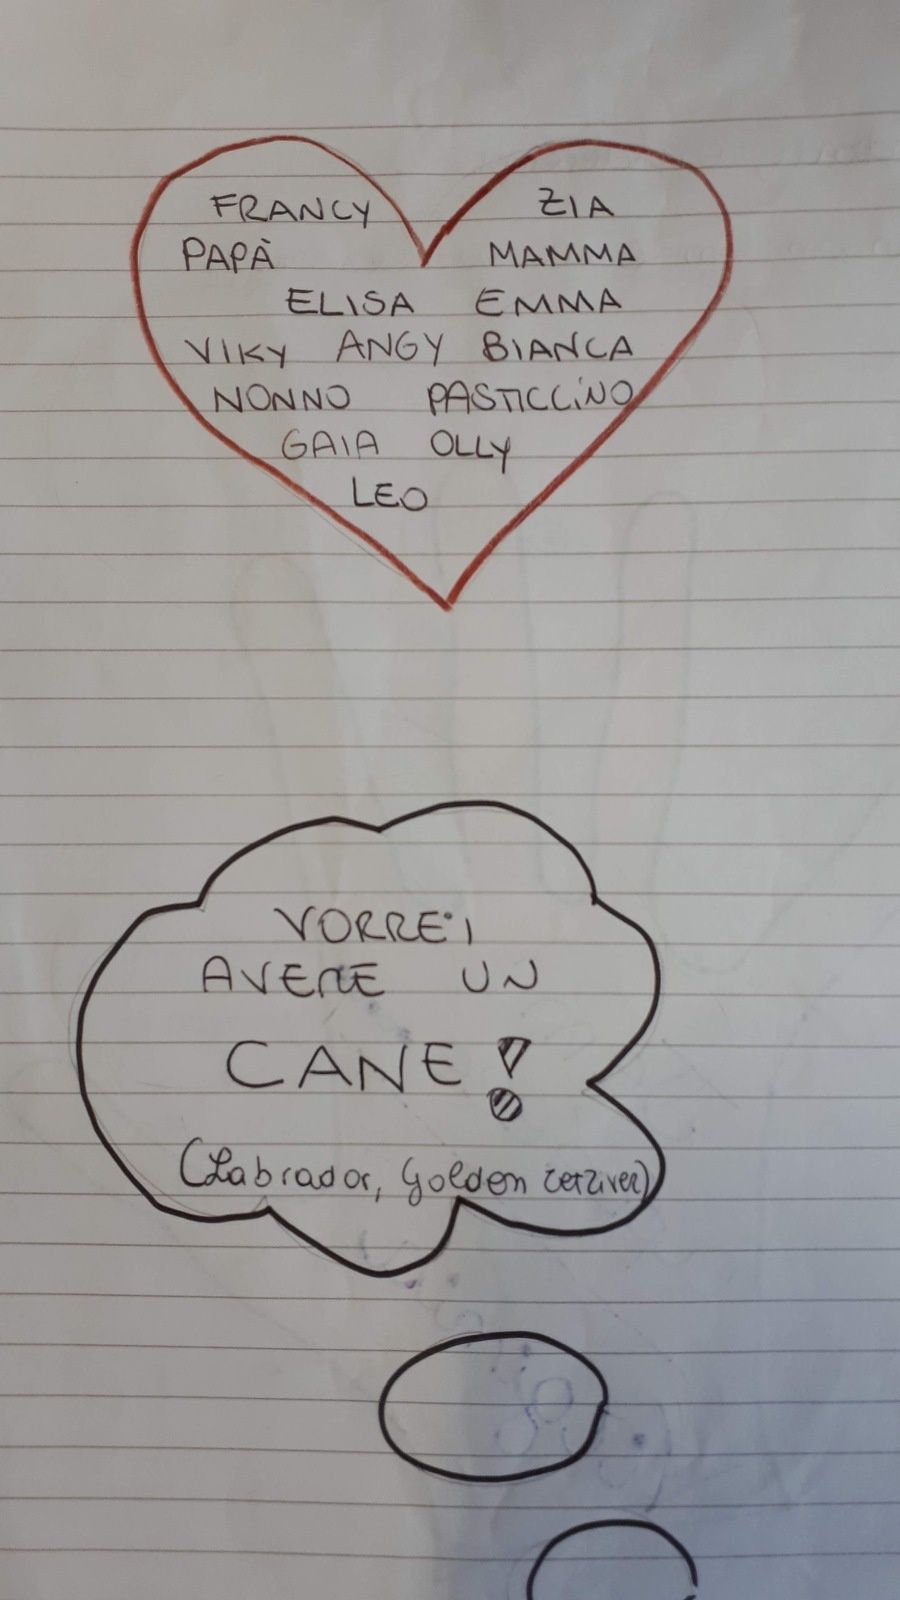 FRANCY ZIA
PAPÀ MAMMA
ELISA EMMA
VIKY ANGY BIANCA
NONNO PASTICCiNO
GAIA OLLY
LEO
VORREI
AVERE UN
CANE!
(Labrador, Golden retriver)